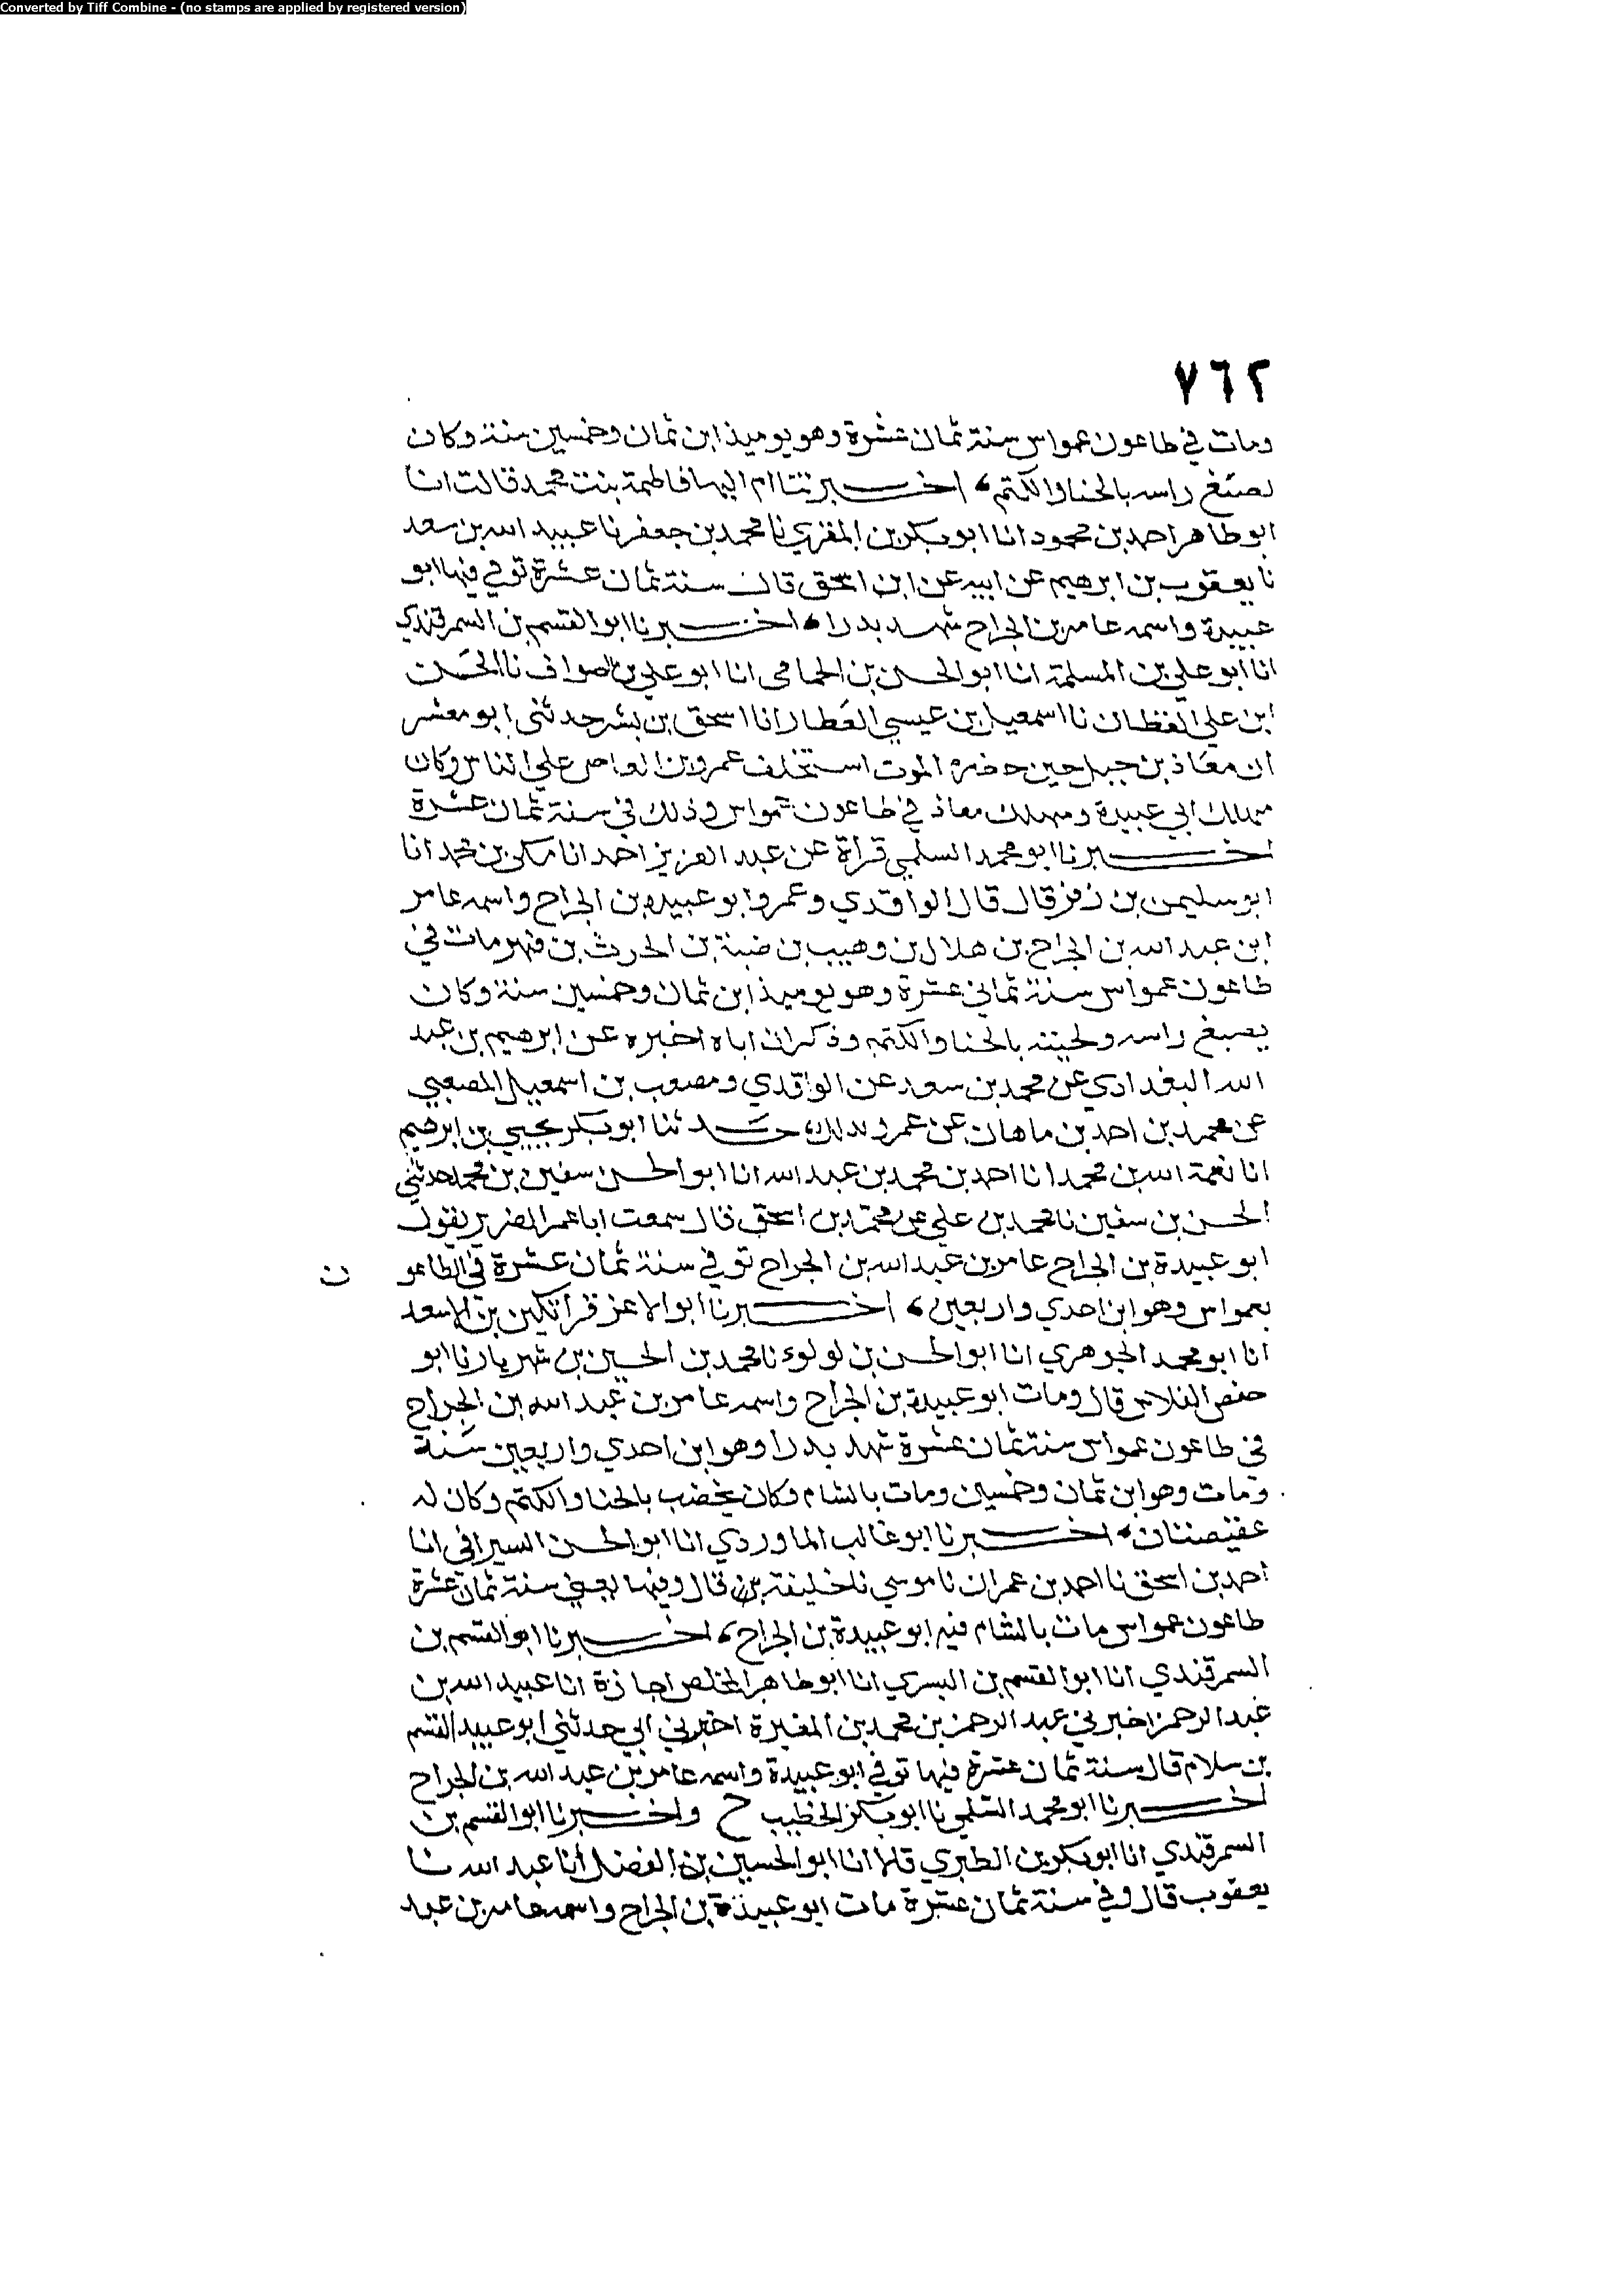 Converted by Tiff Combine - (no stamps are applied by registered version)
٧٦٢
ومات في طاعون عمواس سنة ثمان عشرة وهو يوميذ ابن ثمان وخمسين سنة وكان
يصبغ راسه بالحنا والكتم، اخبرتنا ام البها فاطمة بنت محمد قالت انا
ابو طاهر احمد بن محمود انا ابو بكر بن المقري نا محمد بن جعفر نا عبيد الله بن سعد
نا يعقوب بن ابرهيم عن ابيه عن ابن اسحق قال سنة ثمان عشرة توفي فيها ابو
عبيدة واسمه عامر بن الجراح شهد بدرا، اخبرنا ابو القسم بن السمرقندي
انا ابو علي بن المسلمة انا ابو الحسن بن الحمامى انا ابو علي بن الصواف نا الحسن
ابن علي القطان نا اسمعيل بن عيسي العطار انا اسحق بن بشر حدثنى ابو معشر
ان معاذ بن جبل حين حضره الموت استخلف عمرو بن العاص علي الناس وكان
مهلك ابي عبيدة ومهلك معاذ في طاعون عمواس وذلك في سنة ثمان عشرة
اخبرنا ابو محمد السلمي قراة عن عبد العزيز احمد انا مكى بن محمد انا
ابو سليمن بن زفر قال قال الواقدي وعمرو ابو عبيده بن الجراح واسمه عامر
ابن عبد الله بن الجراح بن هلال بن وهيب بن ضبة بن الحرث بن فهر مات في
طاعون عمواس سنة ثماني عشرة وهو يوميذ ابن ثمان وخمسين سنة وكان
يصبغ راسه ولحيته بالحنا والكتم وذكر ان اباه اخبره عن ابرهيم بن عبد
الله البغدادي عن محمد بن سعد عن الواقدي ومصعب بن اسمعيل المصعبي
عن محمد بن احمد بن ماهان عن عمرو بذلك، حدثنا ابو بكر يحيي بن ابرهيم
انا نعمة الله بن محمد انا احمد بن محمد بن عبد الله انا ابو الحسن سفين بن محمد حدثني
الحسن بن سفين نا محمد بن علي عن محمد بن اسحق قال سمعت ابا عمر الضرير يقول
ابو عبيدة بن الجراح عامر بن عبد الله بن الجراح توفي سنة ثمان عشرة في الطاعو ن
بعمواس وهو ابن احدي واربعين، اخبرنا ابو الاعز قراتكين بن الاسعد
انا ابو محمد الجوهري انا ابو الحسن بن لولوء نا محمد بن الحسين بن شهريار نا ابو
حفص الفلاس قال ومات ابو عبيدة بن الجراح واسمه عامر بن عبد الله بن الجراح
في طاعون عمواس سنة ثمان عشرة شهد بدرا وهو ابن احدي واربعين سنة
ومات وهو ابن ثمان وخمسين ومات بالشام وكان يخضب بالحنا والكتم وكان له
عقيصتان، اخبرنا ابو غالب الماوردي انا ابو الحسن السيرافي انا
احمد بن اسحق نا احمد بن عمران نا موسي نا خليفة بن قال وفيها يعني سنة ثمان عشرة
طاعون عمواس مات بالشام فيه ابو عبيدة بن الجراح، اخبرنا ابو القسم بن
السمرقندي انا ابو القسم بن البسري انا ابو طاهر المخلص اجازة انا عبيد الله بن
عبد الرحمن اخبرني عبد الرحمن بن محمد بن المغيرة اخبرني ابي حدثني ابو عبيد القسم
بن سلام قال سنة ثمان عشرة فيها توفي ابو عبيدة واسمه عامر بن عبد الله بن الجراح
اخبرنا ابو محمد السلمي نا ابو بكر الخطيب ح واخبرنا ابو القسم بن
السمرقندي انا ابو بكر بن الطبري قالا انا ابو الحسين بن الفضل انا عبد الله نا
يعقوب قال وفي سنة ثمان عشرة مات ابو عبيدة بن الجراح واسمه عامر بن عبد